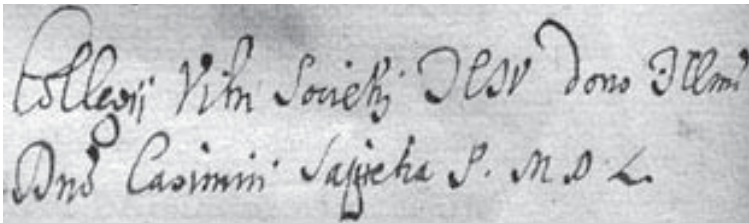 Collegij Viln Societis JESV dono Illmi
Dnẽ Casimiri Sapieha P. M D L.